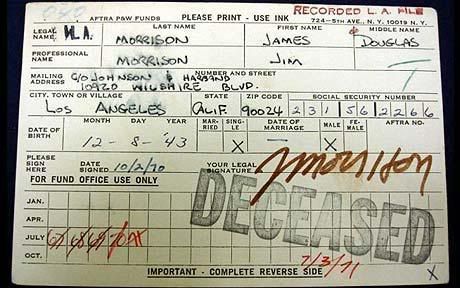 RECORDED L. A. FILE
AFTRA P&W FUNDS PLEASE PRINT - USE INK 724-5th AVE., N.Y. 10019 N.Y.
LEGAL NAME LAST NAME FIRST NAME MIDDLE NAME
MORRISON JAMES DOUGLAS
PROFESSIONAL NAME MORRISON JIM
MAILING ADDRESS NUMBER AND STREET
C/O JOHNSON & HARBAND
10920 WILSHIRE BLVD.
CITY, TOWN OR VILLAGE STATE ZIP CODE SOCIAL SECURITY NUMBER
LOS ANGELES CALIF. 90024 231 56 2266
DATE OF BIRTH MONTH DAY YEAR MARRIED SINGLE DATE OF MARRIAGE MALE FEMALE AFTRA NO.
12 - 8 - '43 X — X
PLEASE SIGN HERE DATE SIGNED 10/2/70 YOUR LEGAL SIGNATURE JMorrison
FOR FUND OFFICE USE ONLY
DECEASED
JAN.
APR.
JULY 67 68 69 70 71
OCT.
7/3/71
IMPORTANT - COMPLETE REVERSE SIDE X